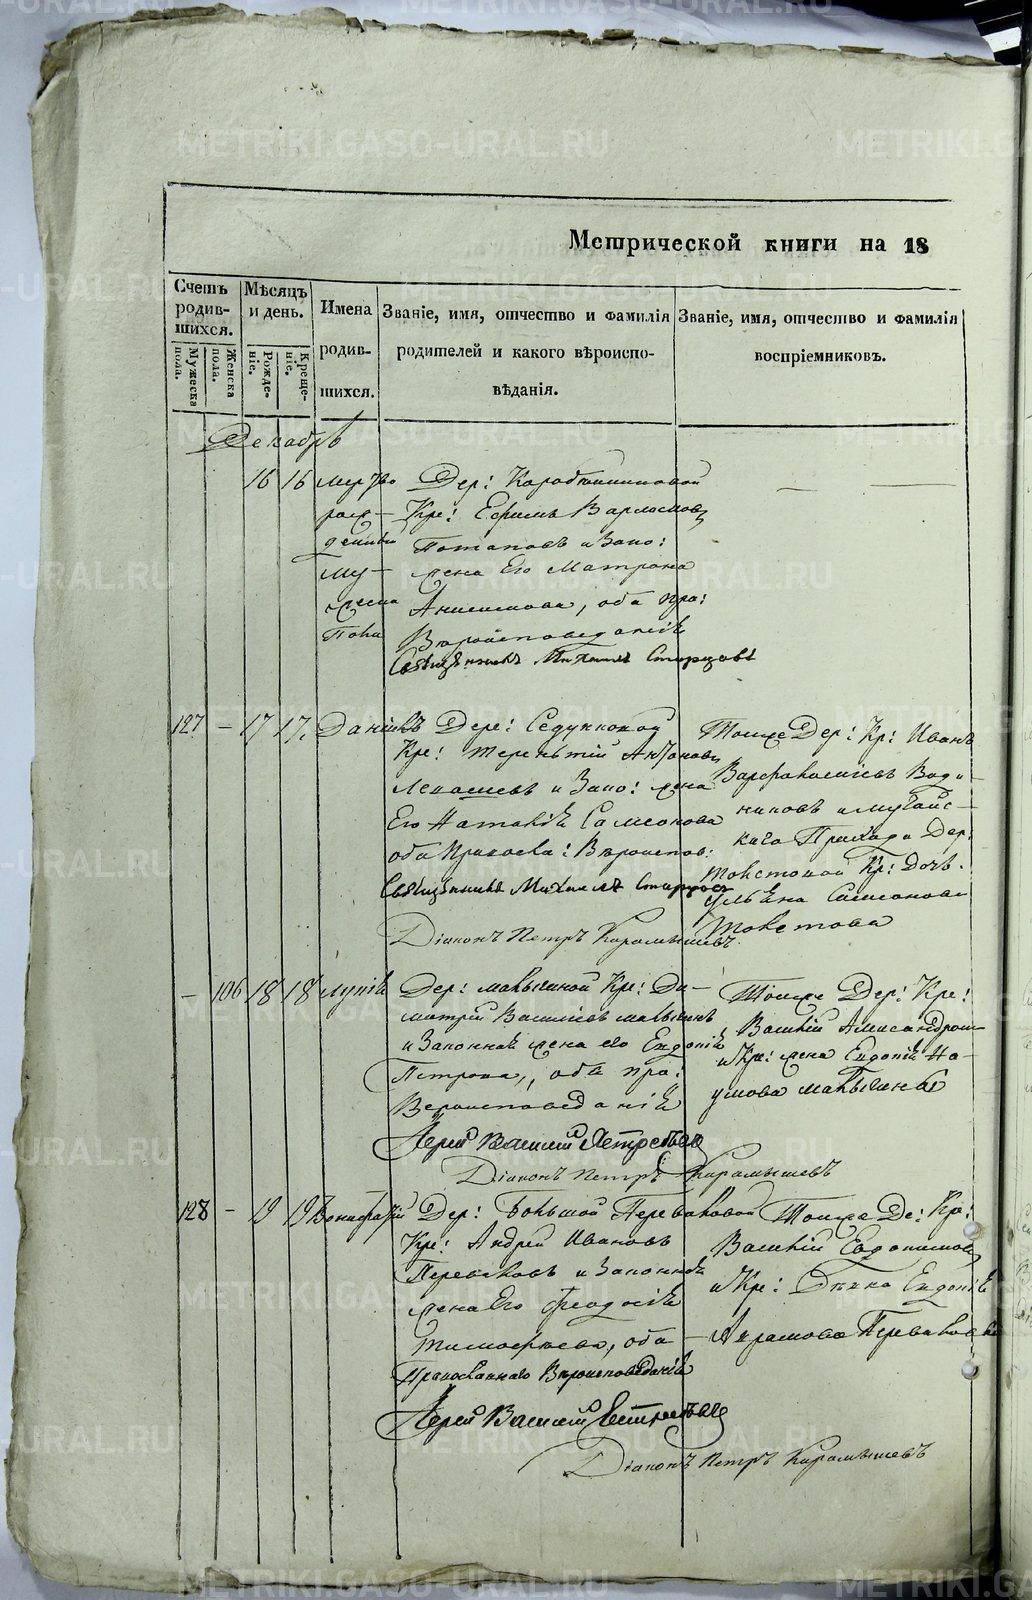 Метрической книги на 18
Счетъ родив- шихся.
Мужеска пола.
Женска пола.
Мѣсяцъ и день.
Рожде- ніе.
Креще- ніе.
Имена родив- шихся.
Званіе, имя, отчество и фамилія родителей и какого вѣроиспо- вѣданія.
Званіе, имя, отчество и фамилія воспріемниковъ.
Декабрь
16 16 мертво
рож-
денный
му-
жеска
Пола
Дер:
Кре: Ефимъ Варламовъ
Потаповъ и Зако:
жена Его Матрона
Анисимова, оба пра:
Вѣроисповеданія
Священникъ Михаилъ Старцовъ
127 — 17 17. Даніилъ
Дере:
Кре: Терентій Антоновъ
и Зако: жена
Его Наталія Самсонова
оба Правосла: Вѣроиспов:
Священникъ Михаилъ Старцовъ
Діаконъ Петръ Карамышевъ.
Тоиже Дер: Кр: Иванъ
Вади-
ковъ и
каго Прихода Дер:
Толстовой Кр: Дочь
Ульяна Самсонова
Толстова
— 106 18 18
Дер: Малыгиной Кре: Ди-
митрій Васильевъ Малыгинъ
и Законная жена его Евдокія
Петрова, оба пра:
Вероисповеданія
Іерей Василій
Діаконъ Петръ Карамышевъ
Тоиже Дер: Кре:
Василій Александровъ
и Кре: жена Евдокія На-
умова Малыгины
128 — 19 19 Вонифатій
Дер: Большой Перваловой
Кре: Андрей Ивановъ
Переваловъ и Законная
жена Его Феодосія
Тимофеева, оба
Православнаго Вѣроисповеданія
Іерей Василій
Діаконъ Петръ Карамышевъ
Тоиже Де: Кре:
Василій Евдокимовъ
и Кре: Дѣвка Евдокія
Аврамова Перевалова
METRIKI.GASO-URAL.RU